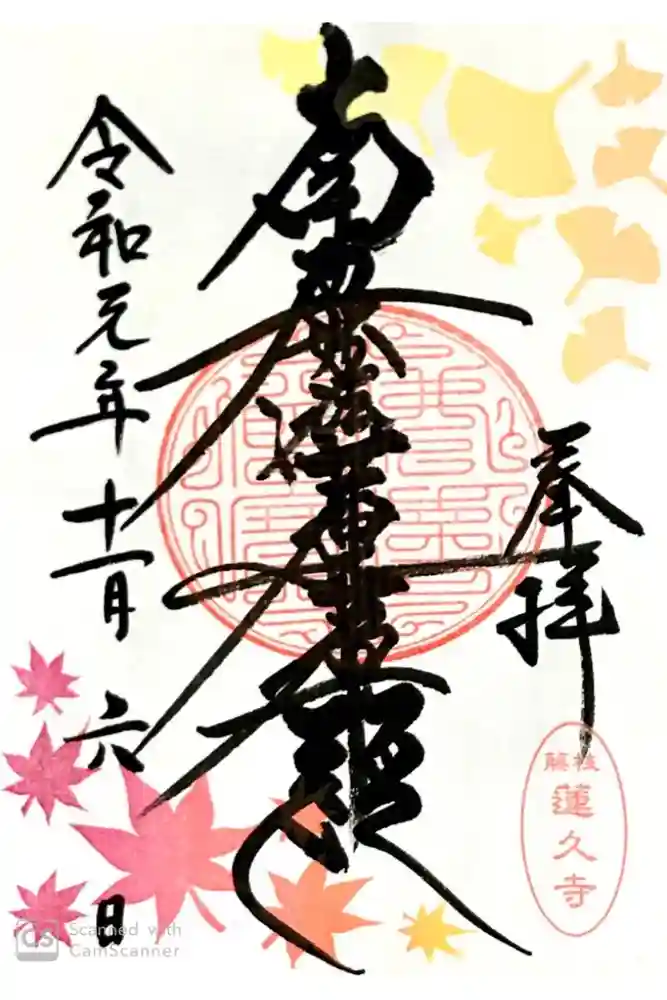 奉拝
藤枝
蓮久寺
南無妙法蓮華経
令和元年十一月六日
CS Scanned with
CamScanner